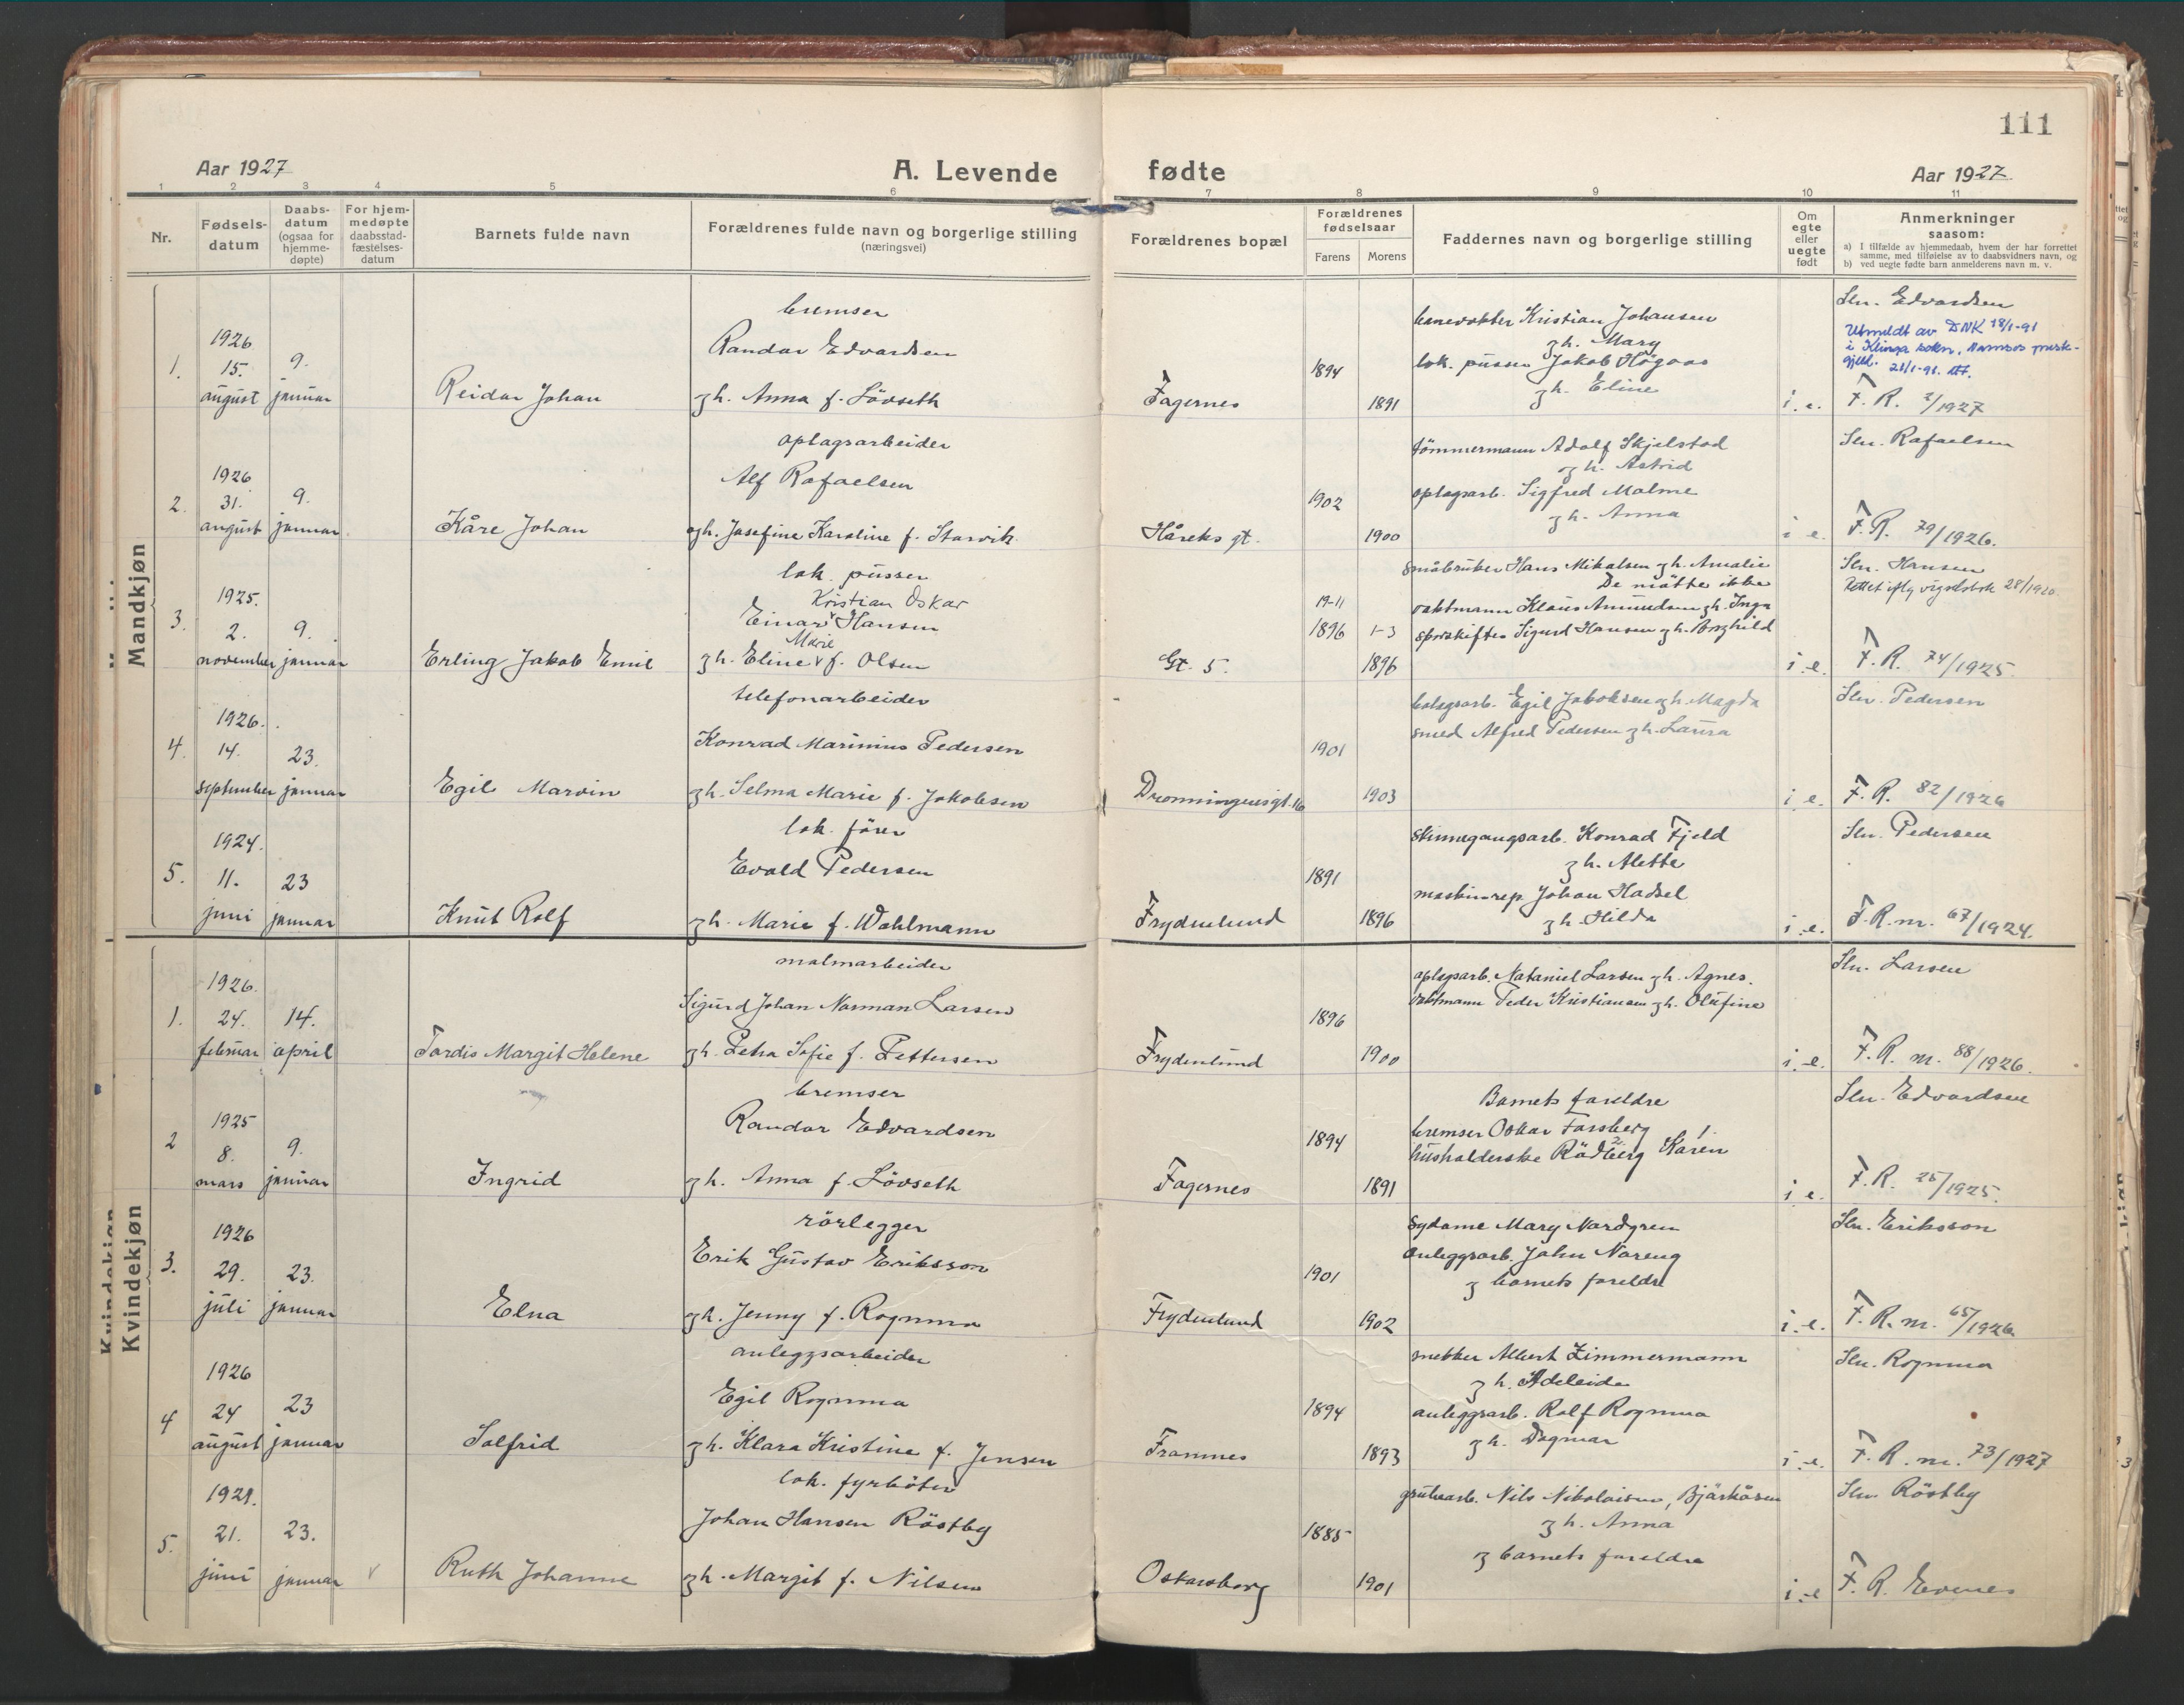 111
Aar 1927
A. Levende fødte
Aar 1927.
1 2 3 4 5 6 7 8 9 10 11
Nr.
Fødsels-
datum
Daabs-
datum
(ogsaa for
hjemme-
døpte)
For hjem-
medøpte
daabsstad-
fæstelses-
datum
Barnets fulde navn
Forældrenes fulde navn og borgerlige stilling
(næringsvei)
Forældrenes bopæl
Forældrenes
fødselsaar
Farens Morens
Faddernes navn og borgerlige stilling
Om
egte
eller
uegte
født
Anmerkninger
saasom:
a) I tilfælde av hjemmedaab, hvem der har forrettet
samme, med tilføielse av to daabsvidners navn, og
b) ved uegte fødte barn anmelderens navn m. v.
Mandkjøn
1.
1926
15.
august
9.
januar
Reidar Johan
bremser
Randar Edvardsen
og h. Anna f. Lövseth
Fagernes
1894
1891
banevokter Kristian Johansen
og h. Mary
lok. pusser Jakob Högaas
og h. Eline
i. e.
Sln. Edvardsen
Utmeldt av DNK 18/1-91
i Klinga sokn, Namsos prest-
gjeld. 21/1-91.
F. R. 2/1927
2.
1926
31.
august
9.
januar
Kåre Johan
oplagsarbeider
Alf Rafaelsen
og h. Josefine Karoline f. Starvik
Håreks gt.
1902
1900
tömmermann Adolf Skjelstad
og h. Astrid
oplagsarb. Sigfred Malme
og h. Anna
i e.
Sln. Rafaelsen
F. R. 79/1926.
3.
1925.
2.
november
9.
januar
Erling Jakob Emil
lok. pusser
Kristian Oskar
Einar Hansen
Marie
og h. Eline f. Olsen
Gt. 5.
19-11
1896
1-3
1896
småbruker Hans Mikalsen og h. Amalie
De måtte ikke
vaktmann Klaus Amundsen og h. Inga
sporskifter Sigurd Hansen og h. Borghild
i. e.
Sln. Hansen
Rettet iflg vigselsbok 28/1920.
F. R. 74/1925.
4.
1926.
14.
september
23.
januar
Egil Marvin
telefonarbeider
Konrad Marinius Pedersen
og h. Selma Marie f. Jakobsen
Dronningensgt. 16
1901
1903
Egil Jakobsen og h. Magda
smed Alfred Pedersen og h. Laura
i. e.
Sln. Pedersen
F. R. 82/1926
5.
1924.
11.
juni
23
januar
Knut Rolf
lok. förer
Evald Pedersen
og h. Marie f. Wahlmann
Frydenlund
1891
1896
skinnegangsarb. Konrad Fjeld
og h. Alette
maskinrep. Johan Hadsel
og h. Hilda
i. e.
Sln. Pedersen
F. R. nr. 67/1924.
Kvindekjøn
1.
1926.
24.
februar
14.
april
Tordis Margit Helene
malmarbeider
Sigurd Johan Norman Larsen
og h. Petra Sofie f. Pettersen
Frydenlund
1896
1900
oplagsarb. Nataniel Larsen og h. Agnes.
vaktmann Peder Kristiansen og h. Olufine
i. e.
Sln. Larsen
F. R. nr. 88/1926.
2
1925
8.
mars
9.
januar
Ingrid
bremser
Randar Edvardsen
og h. Anna f. Lövseth
Fagernes
1894
1891
Barnets foreldre
bremser Oskar Forsberg
husholderske Rödberg 2. Karen 1.
i e.
Sln. Edvardsen
F. R. 25/1925.
3.
1926
29.
juli
23.
januar
Elna
rörlegger
Erik Gustav Eriksson
og h. Jenny f. Rognmo
Frydenlund
1901
1902
sydame Mary Nordgren
anleggsarb. John Noreng
og barnets foreldre
i. e.
Sln. Eriksson
F. R. nr. 65/1926
4
1926
24
august
23
januar
Solfrid
anleggsarbeider
Egil Rognmo
og h. Klara Kristine f. Jensen
Framnes
1894
1893
snekker Albert Zimmermann
og h. Adeleide
anleggsarb. Rolf Rognmo
og h. Dagmar
i. e.
Sln. Rognmo
F. R. nr. 73/1927
5.
1921.
21.
juni
23.
januar
v
Ruth Johanne
lok. fyrböter
Johan Hansen Röstby
og h. Margit f. Nilsen
Oskarsborg
1885
1901
grubearb. Nils Nikolaisen, Bjärkåsen
og h. Anna
og barnets foreldre
i. e
Sln. Röstby
F. R. Evenes